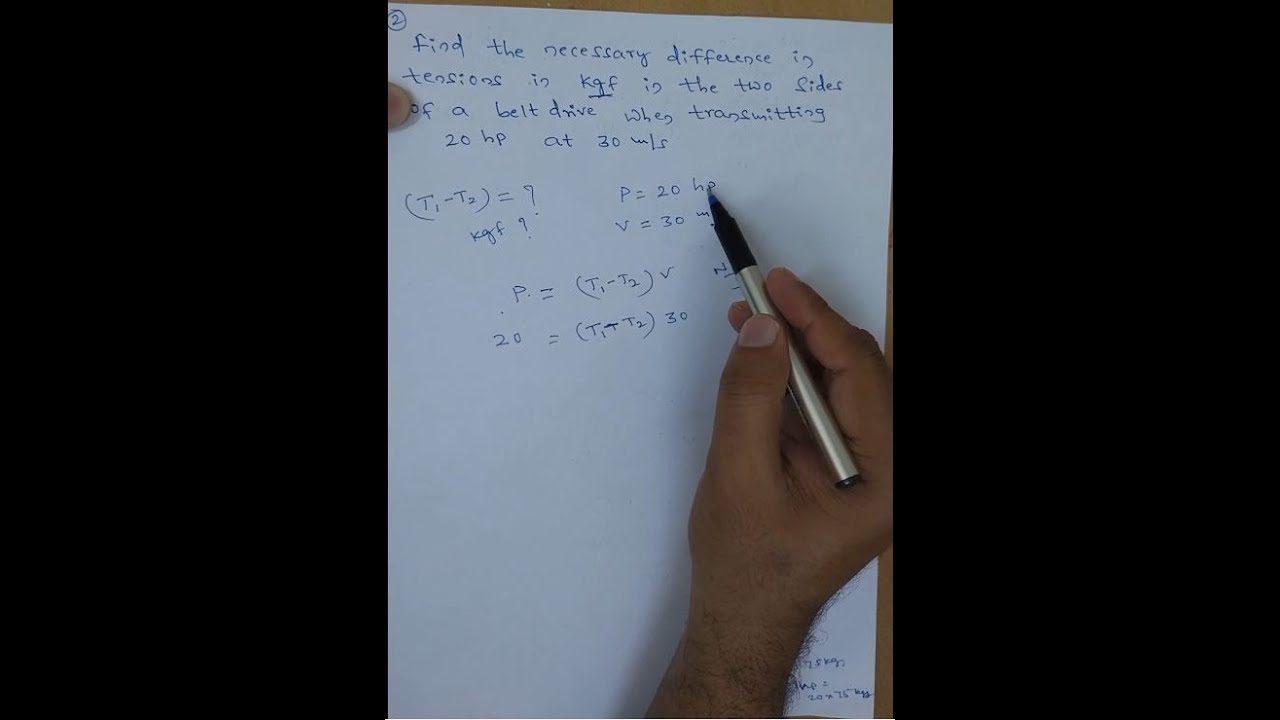 2
find the necessary difference in
tensions in kgf in the two sides
of a belt drive when transmitting
20 hp at 30 m/s
(T₁-T₂) = ?
kgf ?
P = 20 hp
V = 30 m
P. = (T₁-T₂) V
N
20 = (T₁-T₂) 30
75 kg
hp =
20 x 75 kg